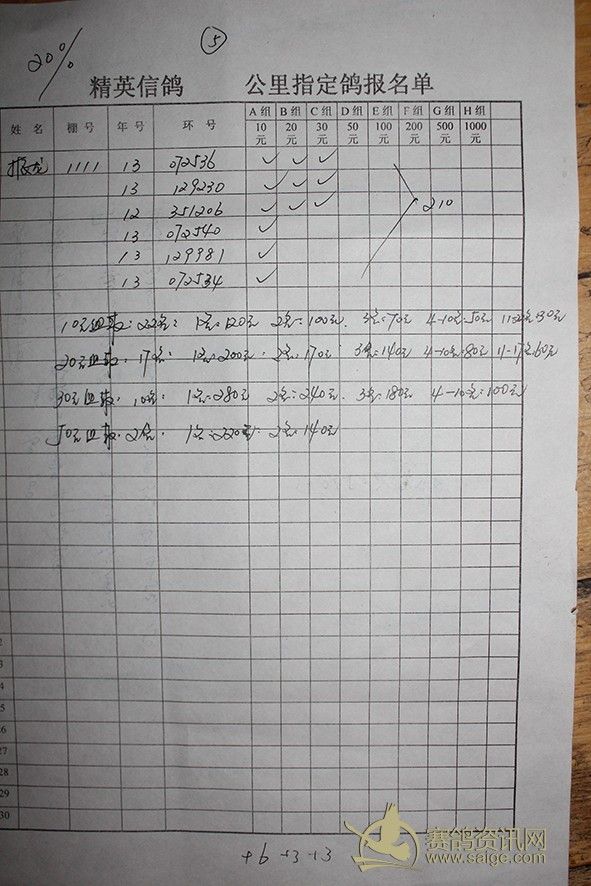 20%
⑤
精英信鸽 公里指定鸽报名单
姓 名 棚 号 年 号 环 号 A 组 B 组 C 组 D 组 E 组 F 组 G 组 H 组
10 元 20 元 30 元 50 元 100 元 200 元 500 元 1000 元
1111 13 072536 ✓ ✓ ✓
13 129230 ✓ ✓ ✓
12 351206 ✓ ✓ ✓ 210
13 072540 ✓
13 129981 ✓
13 072534 ✓
10元组 22名: 1名=120元 2名=100元 3名=70元 4-10名=50元 11-22名=30元
20元组 17名: 1名=200元 2名=170元 3名=140元 4-10名=80元 11-17名60元
30元组 10名: 1名=280元 2名=240元 3名=180元 4-10名=100元
50元组 2名: 1名=220元 2名=140元
27
28
29
30
+6 +3 +3
赛鸽资讯网
www.saige.com